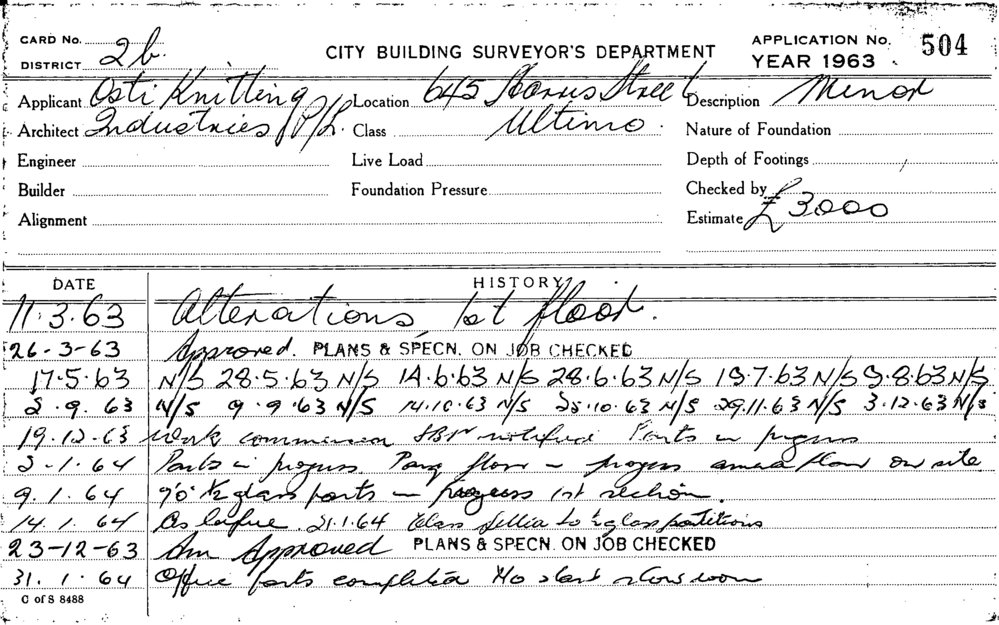 CARD No.
DISTRICT 2b
CITY BUILDING SURVEYOR'S DEPARTMENT
APPLICATION No. 504
YEAR 1963
Applicant Osti Knitting Location 645 Harris Street Description Minor
Architect Industries P/L. Class Ultimo. Nature of Foundation
Engineer Live Load Depth of Footings
Builder Foundation Pressure Checked by
Alignment Estimate £3000
DATE HISTORY
11.3.63 Alterations 1st floor.
26-3-63 Approved. PLANS & SPECN. ON JOB CHECKED
17.5.63 N/S 28.5.63 N/S 14.6.63 N/S 28.6.63 N/S 19.7.63 N/S 9.8.63 N/S
2.9.63 N/S 9.9.63 N/S 14.10.63 N/S 25.10.63 N/S 29.11.63 N/S 3.12.63 N/S
19.12.63 Work commenced notified Parts in progress
3.1.64 Parts in progress floor in progress floor on site
9.1.64 9'0" 1/2 glass parts in progress 1st section.
14.1.64 As before. 21.1.64 Glass to 1/2 glass partitions
23-12-63 Am Approved PLANS & SPECN. ON JOB CHECKED
31.1.64 Office parts completed No start showroom
C of S 8488